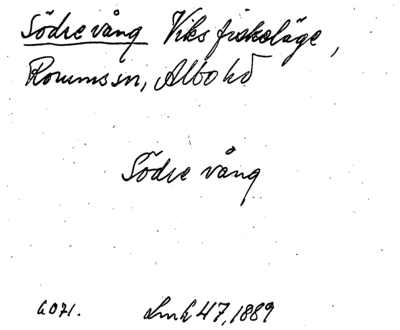 Södre vång Viks fiskeläge,
Rörumssn, Albo hd
Södre vång
A071. Lmk 47, 1889